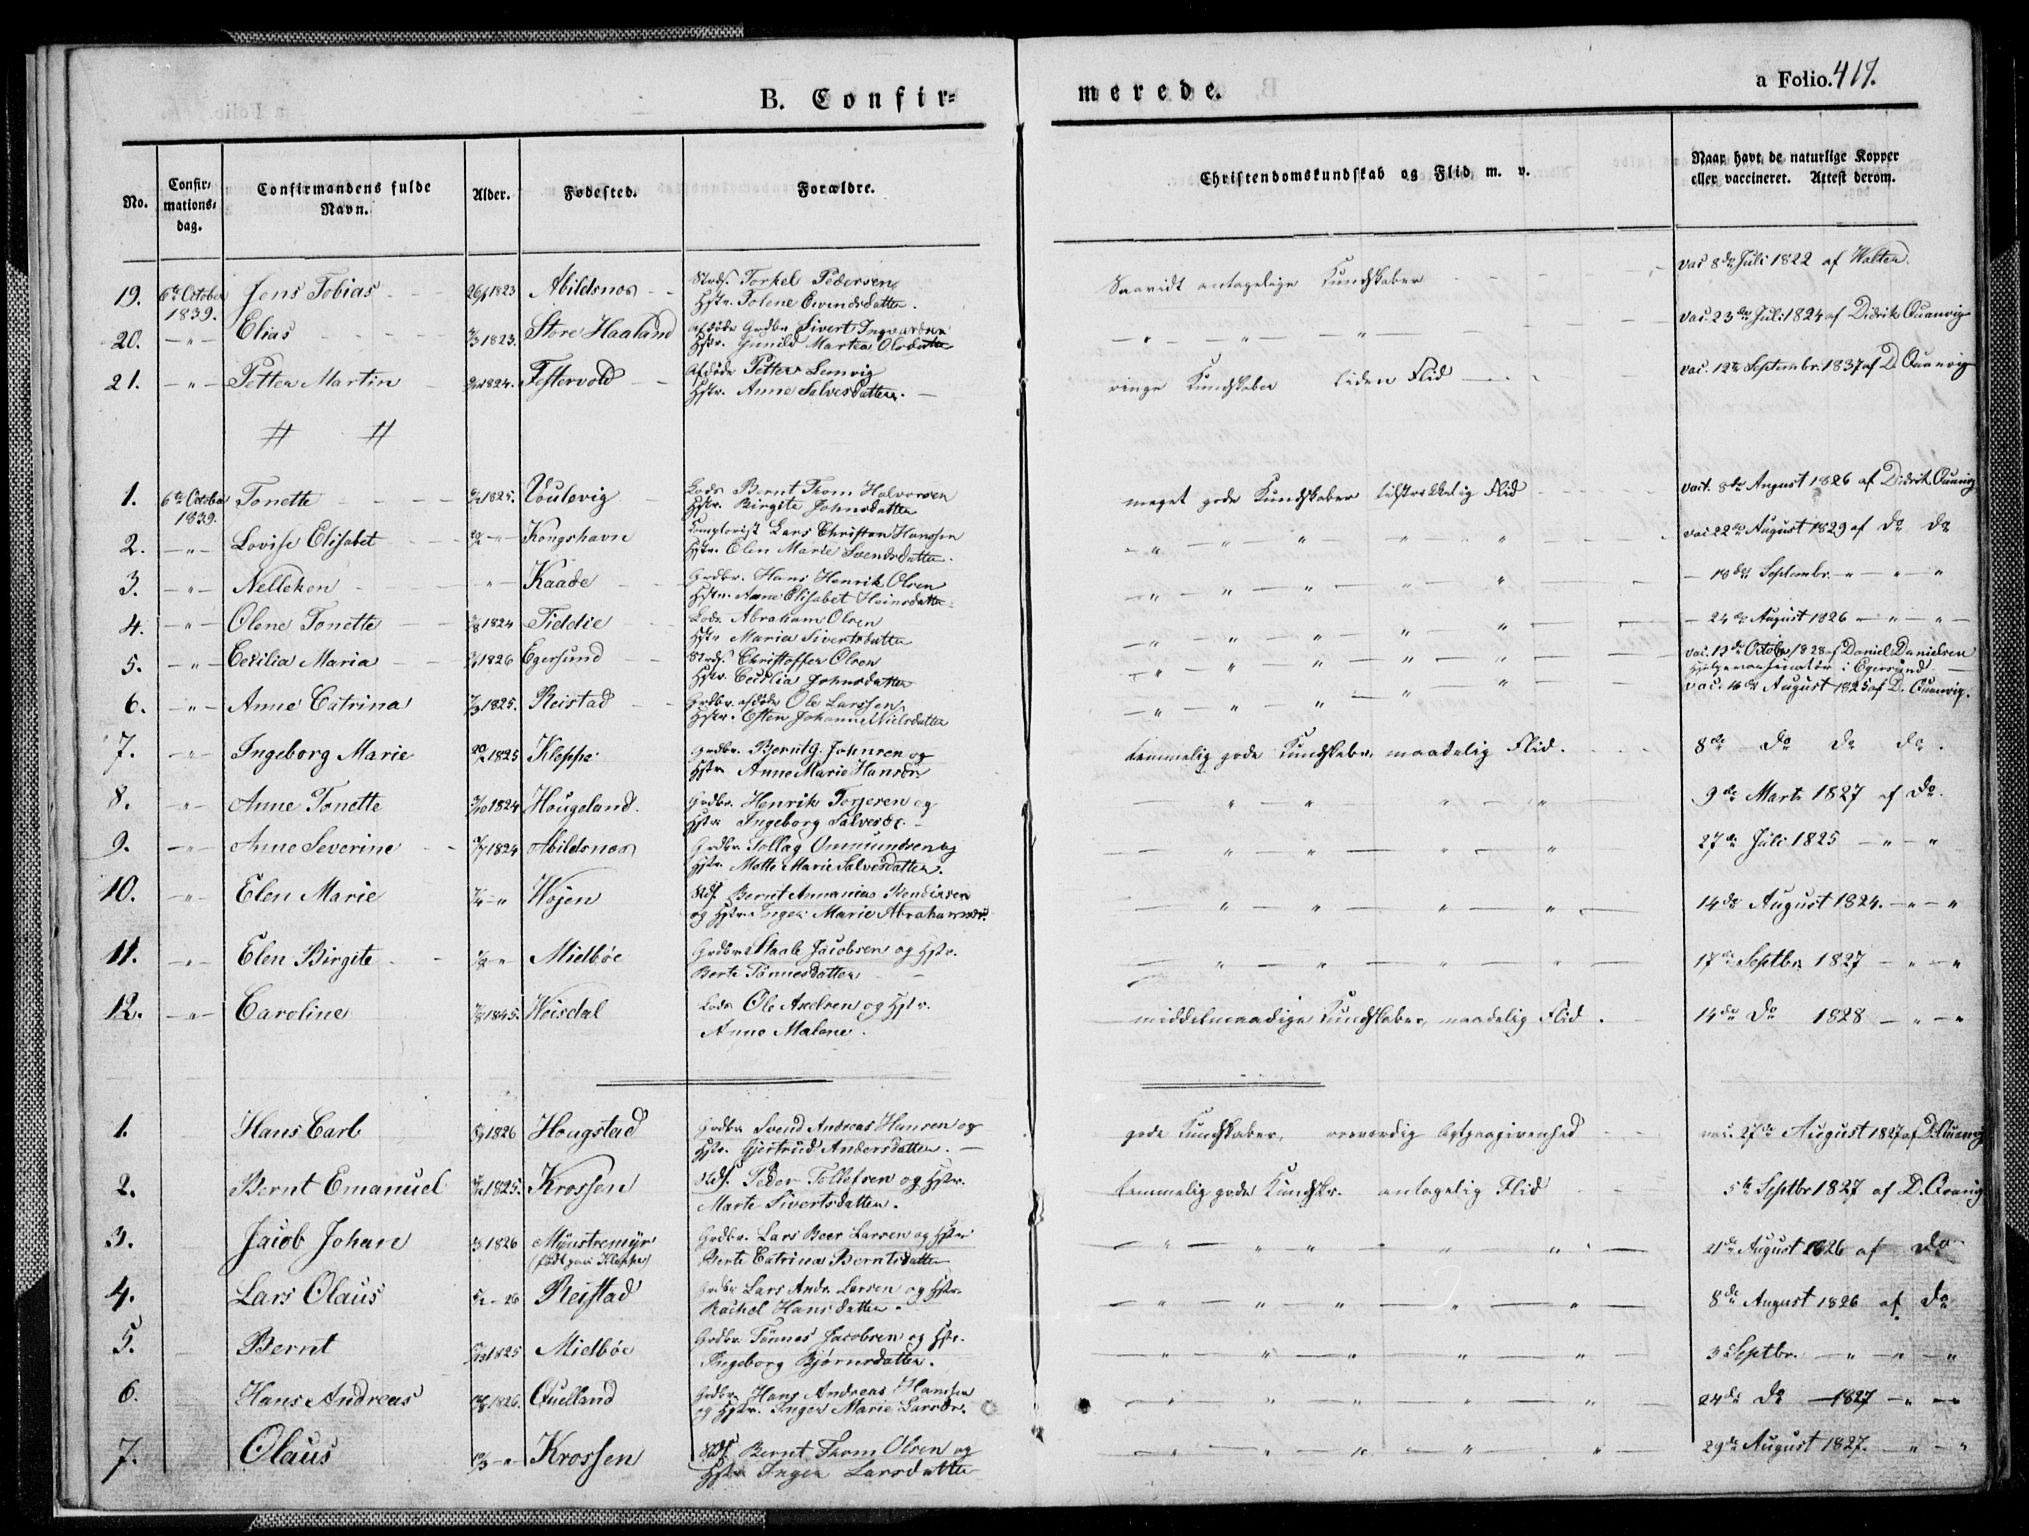 B. Confir=
merede.
a Folio. 417.
No.
Confir=
mations=
dag.
Confirmandens fulde
Navn.
Alder.
Fødested.
Forældre.
Christendomskundskab og Flid m. v.
Naar havt de naturlige Kopper
eller vaccineret. Attest derom.
19. 6te October 1839. Jens Tobias 1823 Abildsnes Strds. Torkel Pedersen
Hstr. Tolene Evindsdatter. Saavidt antagelige Kundskaber vac 8de Juli 1822 af Walter.
20. -"- Elias 1823. Store Haaland afdøde Grdbr Sivert Ingvarsen
Hstr. Gunild Martea Olsdatter - " - " - " vac 23de Juli 1824 af Didrik Quanvig
21. -"- Petter Martin 1824. Festervold Afdøde Petter Lemvig
Hstr. Anne Salvesdatter. ringe Kundskaber liden Flid vac. 12te Septembr. 1837 af D. Quanvig
# #
1. 6te October 1839. Tonette 1825. Voulevig Lods Bernt Thom Halvorsen
Hstr. Birgite Johnsdatter meget gode Kundskaber tilstrækkelig Flid vac. 8de August 1826 af Didrik Quanvig
2. -"- Lovise Elisabet -"- Kongshavn Lars Christian Hanssen
Hstr. Elen Marie Svendsdatter. vac 22de August 1829 af do do
3. -"- Nelleken " Kaade Grdbr. Hans Henrik Olsen
Hstr. Anne Elisabet Heinsdatter - 18de Septembr. - " - " - "
4. -"- Olene Tonette 1824 Tiddie Lods. Abraham Olsen
Hstr Maria Sivertsdatter - 24de August 1826 - " - " -
5. -"- Cecilia Maria 1826 Egersund Strds. Christoffer Olsen
Hstr. Cecilia Johnsdatter vac. 12de Octobr 1828 af Daniel Danielsen
i Egersund
6. -"- Anne Catrina 1825. Reistad Grdbr. afdøde Ole Larssen
Hstr. Johanne Nielsdatter vac. 16de August 1825 af D. Quanvig.
7. -"- Ingeborg Marie 1825 Kleppe Grdbr. Berntg. Johnsen og
Hstr Anne Marie Hansdr temmelig gode Kundskaber, maadelig Flid. 8de do do do.
8. -"- Anne Tonette 1824 Hougeland. Grdbr. Henrik Torjersen og
Hstr Ingeborg Salvesdr. 9de Marts 1827 af do.
9. -"- Anne Severine 1824 Abildsnes Grdbr Tollag Ommundsen og
Hstr. Mette Marie Salvesdatter. 27de Juli 1825 - " - "
10. -"- Elen Marie - " Højen Strds. Bernt Annanias Bendixsen
og Hstr. Inger Marie Abrahamsdr. 14de August 1824. - " - "
11. -"- Elen Birgite - " Mielbøe Grdbr Staale Jacobsen og Hstr.
Berte Tønnesdatter 17de Septbr. 1827 - " - "
12. -"- Caroline 1845. Høisdal Lods Ole Axelsen og Hstr.
Anne Malene. middelmaadige Kundskaber, maadelig Flid. 14de do 1828 - " - "
1. Hans Carl 1826 Hougstad Grdbr Svend Andreas Hansen og
Hstr. Gjertrud Andersdatter. gode Kundskaber, Agtpaagivenhed vac. 27de August 1827 af D. Quanvig
2. Bernt Emanuel 1825. Krossen Strds. Peder Tollefsen og Hstr.
Marte Sivertsdatter. temmelig gode Kundsk. antagelig Flid 5te Septbr 1827 af D. Qvanvig
3. Jacob Johan 1826 Mynstremyr
(født paa Kleppe) Grdbr. Lars Beer Larsen og Hstr
Berte Catrina Berntsdatter 21de August 1826 af do
4. Lars Olaus - 26 Reistad Grdbr Lars Andr. Larsen og Hstr.
Rachel Hansdatter. 8de August 1826 af do
5. Bernt 1825 Mielbøe Grdbr. Tønnes Jacobsen og Hstr.
Ingeborg Bjørnsdatter. 3 Septbr. - " - " - "
6. Hans Andreas 1826. Quelland Grdbr. Hans Andreas Hansen
og Hstr. Inger Marie Larsdr. 24de do - 1827 - " -
7. Olaus - " Krossen Strds. Bernt Thom Olsen og
Hstr Inger Larsdatter 29de August 1827. - " - "